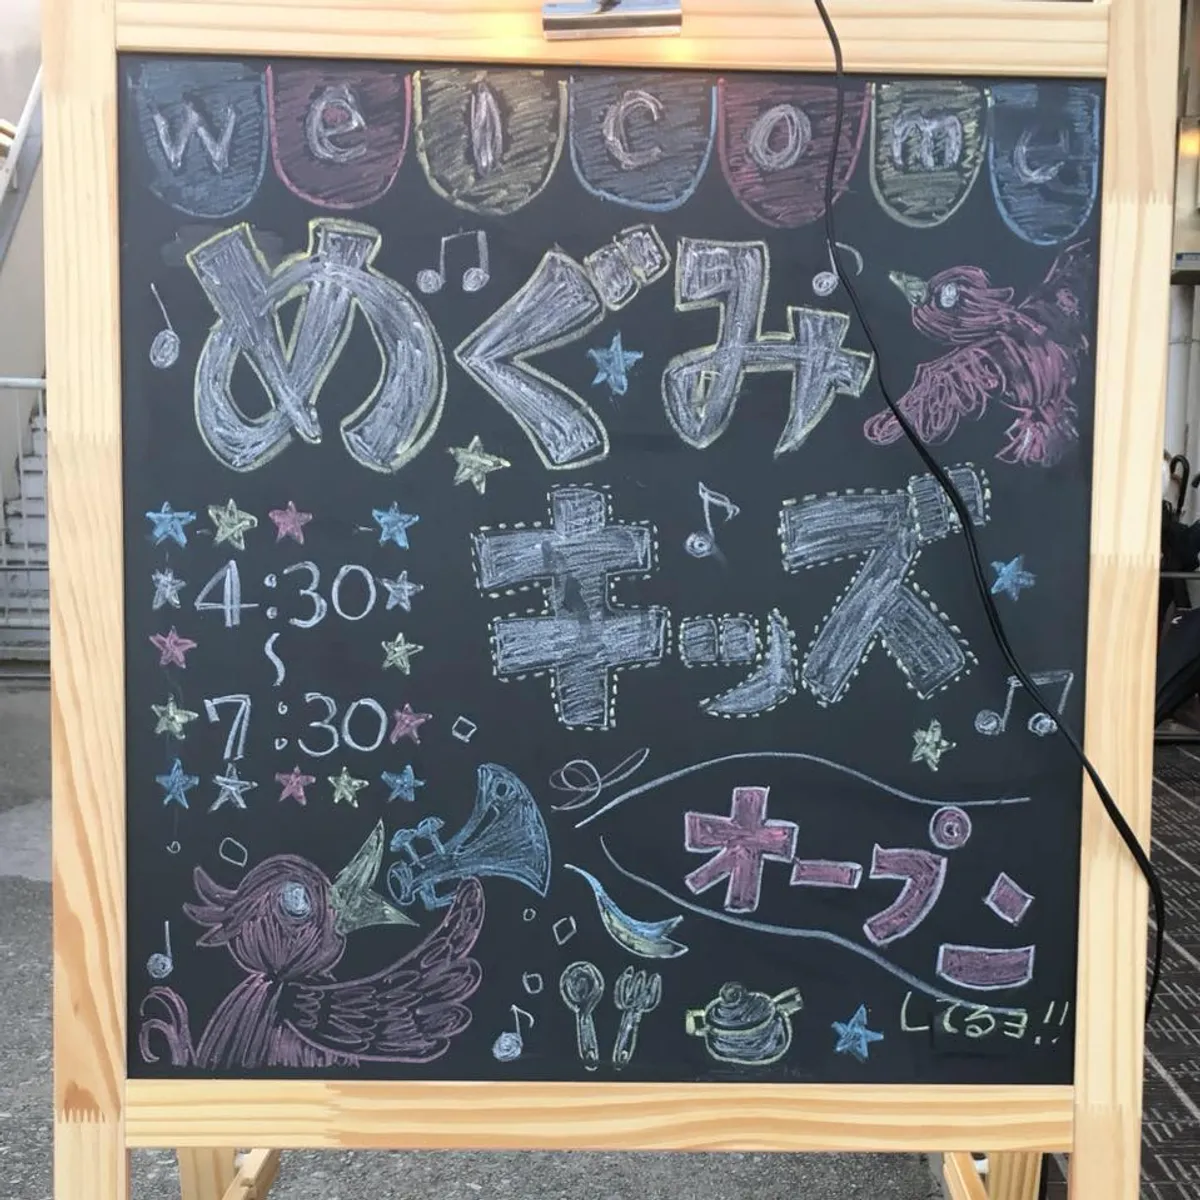 welcome
めぐみ
キッズ
4:30
〜
7:30
オープン
してるヨ!!